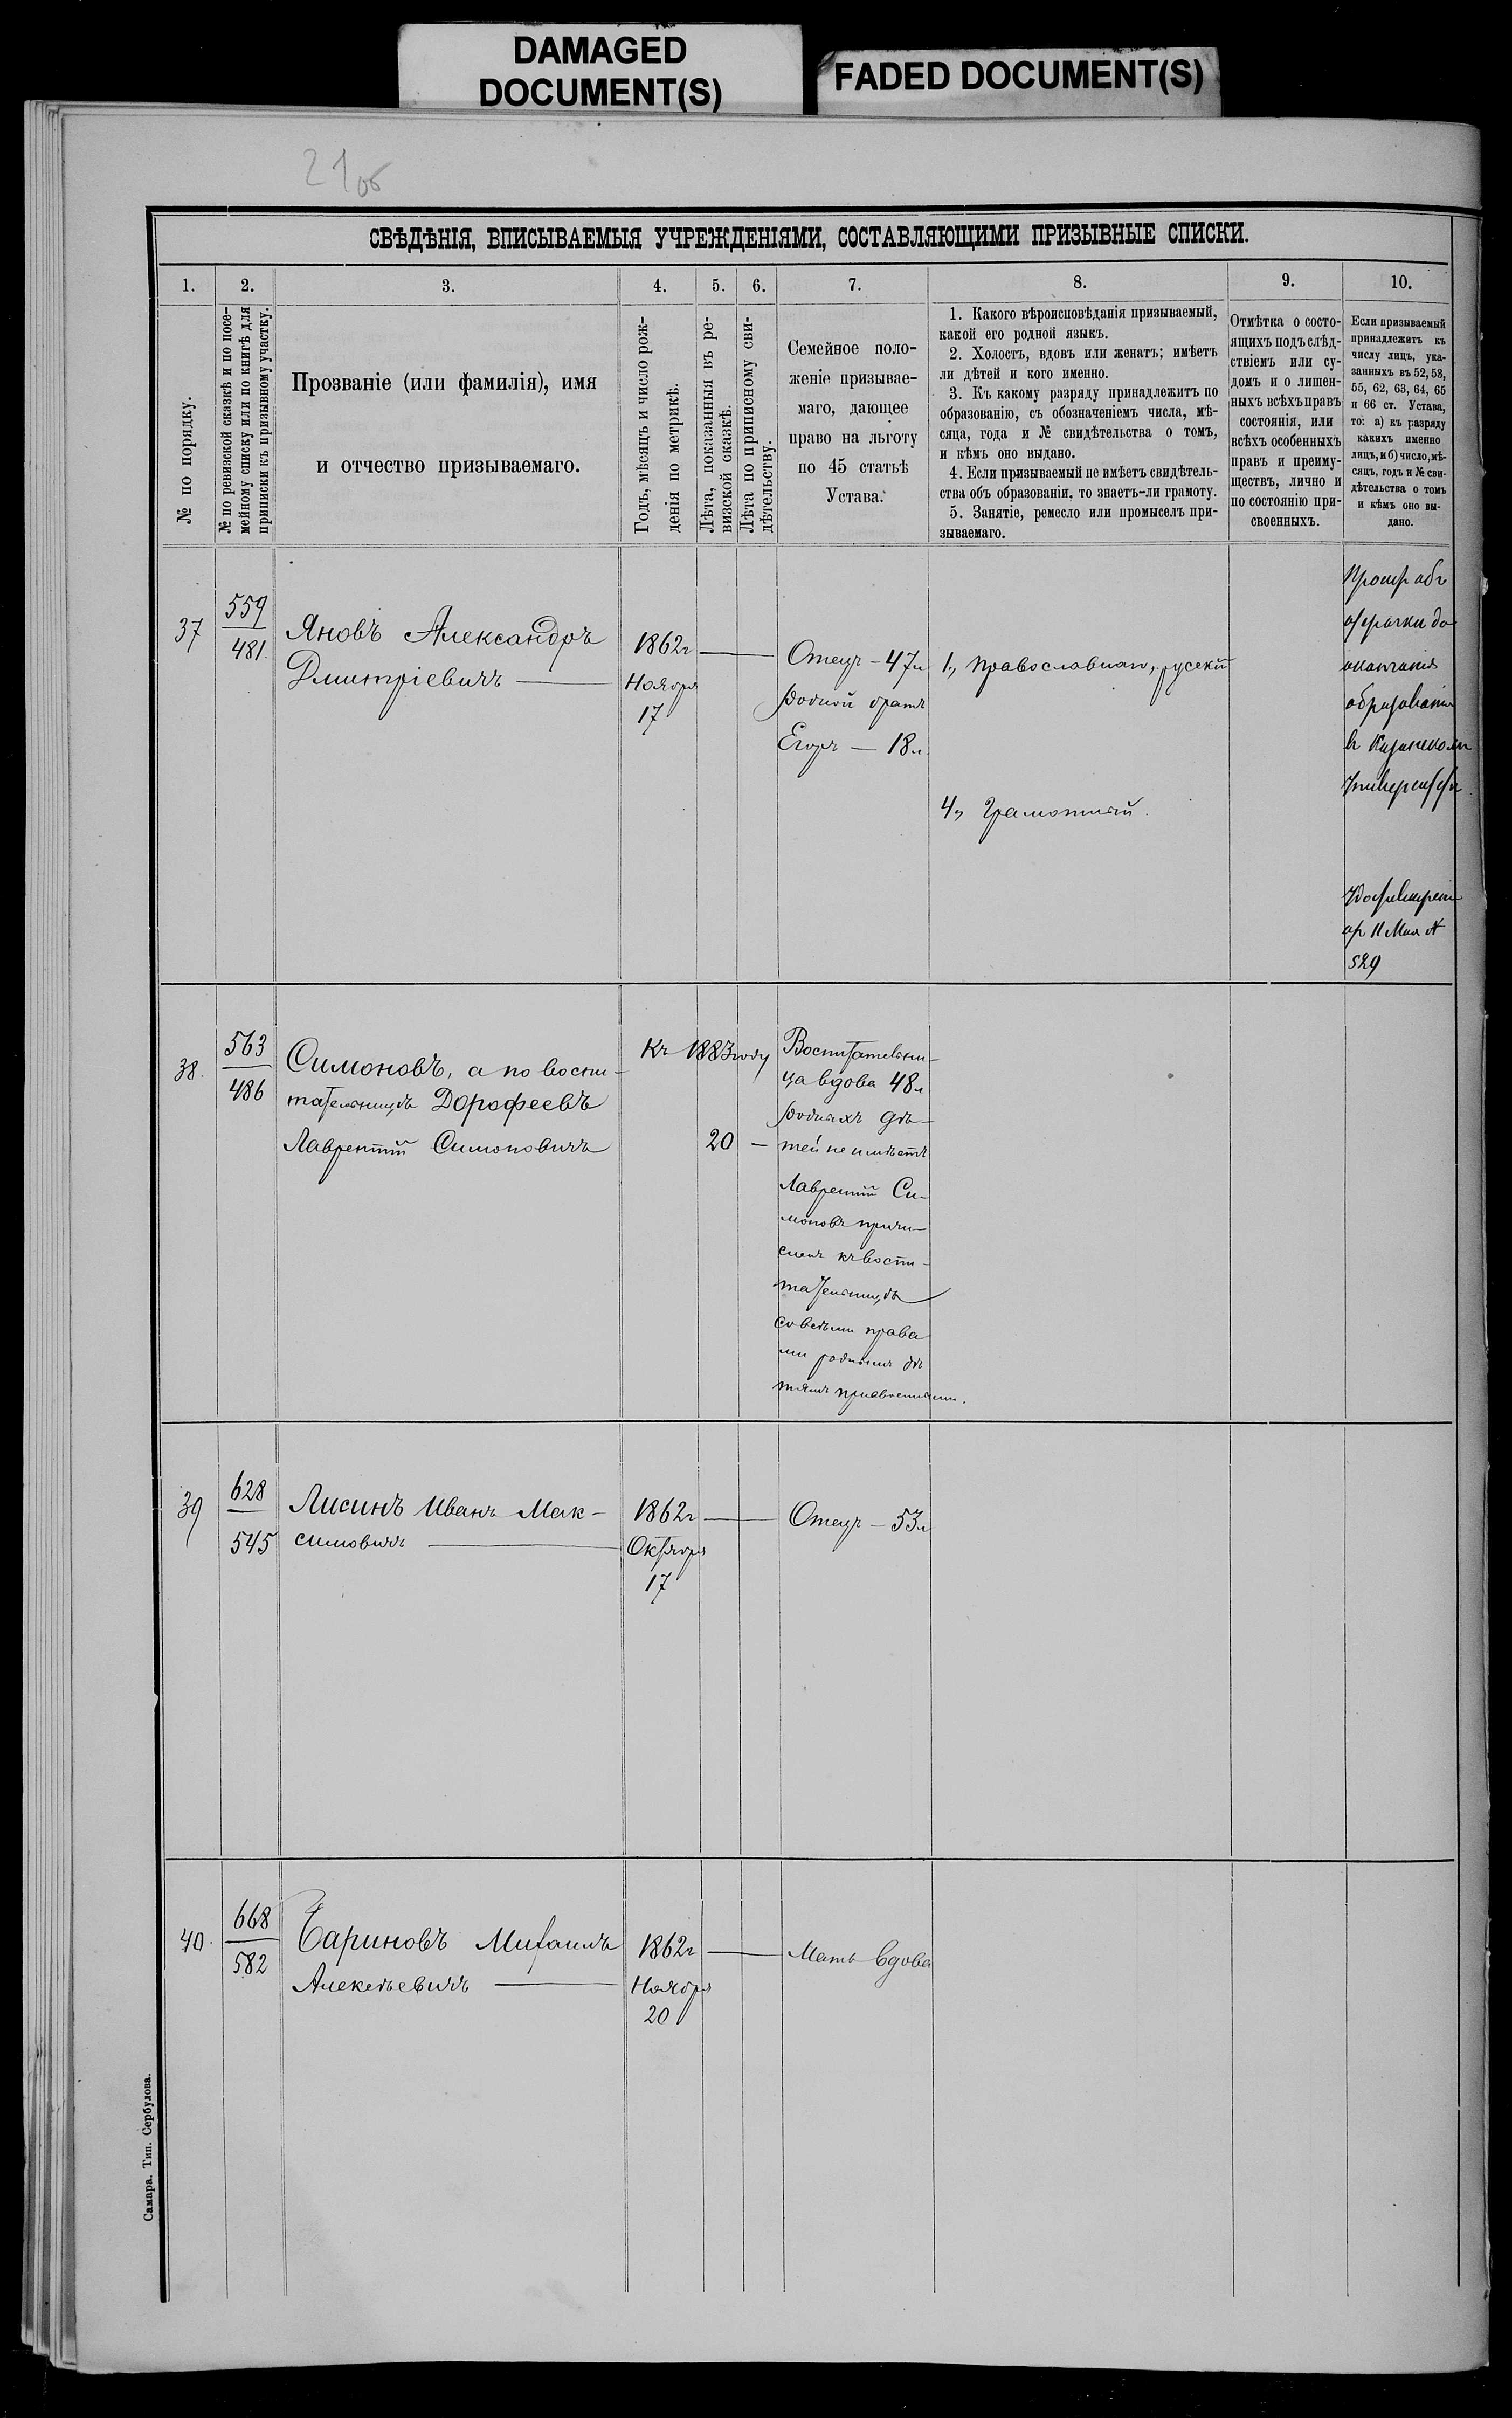 DAMAGED
DOCUMENT(S)
FADED DOCUMENT(S)
21об
СВѢДѢНІЯ, ВПИСЫВАЕМЫЯ УЧРЕЖДЕНІЯМИ, СОСТАВЛЯЮЩИМИ ПРИЗЫВНЫЕ СПИСКИ.
1.
2.
3.
4.
5.
6.
7.
8.
9.
10.
№ по порядку.
№ по ревизской сказкѣ и по посе-
мейному списку или по книгѣ для
приписки къ призывному участку.
Прозваніе (или фамилія), имя
и отчество призываемаго.
Годъ, мѣсяцъ и число рож-
денія по метрикѣ.
Лѣта, показанныя въ ре-
визской сказкѣ.
Лѣта по приписному сви-
дѣтельству.
Семейное поло-
женіе призывае-
маго, дающее
право на льготу
по 45 статьѣ
Устава.
1. Какого вѣроисповѣданія призываемый,
какой его родной языкъ.
2. Холостъ, вдовъ или женатъ; имѣетъ
ли дѣтей и кого именно.
3. Къ какому разряду принадлежитъ по
образованію, съ обозначеніемъ числа, мѣ-
сяца, года и № свидѣтельства о томъ,
и кѣмъ оно выдано.
4. Если призываемый не имѣетъ свидѣтель-
ства объ образованіи, то знаетъ-ли грамоту.
5. Занятіе, ремесло или промыселъ при-
зываемаго.
Отмѣтка о состо-
ящихъ подъ слѣд-
ствіемъ или су-
домъ и о лишен-
ныхъ всѣхъ правъ
состоянія, или
всѣхъ особенныхъ
правъ и преиму-
ществъ, лично и
по состоянію при-
своенныхъ.
Если призываемый
принадлежитъ къ
числу лицъ, ука-
занныхъ въ 52, 53,
55, 62, 63, 64, 65
и 66 ст. Устава,
то: а) къ разряду
какихъ именно
лицъ, и б) число, мѣ-
сяцъ, годъ и № сви-
дѣтельства о томъ
и кѣмъ оно вы-
дано.
37
559
481.
Яновъ Александръ
Дмитріевичъ
1862г
Ноября
17
Отецъ - 47л
родной братъ
Егоръ - 18л.
1., православнаго, русскій
4, Грамотный.
отсрочки до
окончанія
образованія
въ Казанском
Университ
от 11 Мая №
529
38.
563
486
Симоновъ, а по воспи-
тательницѣ Дорофеевъ
Лаврентій Симоновичъ
Къ 1883 году
20 -
Воспитательни-
ца вдова 48л
родныхъ дѣ-
тей не имѣетъ
Лаврентій Си-
моновъ причи-
сленъ къ воспи-
тательницѣ
со всѣми права
ми роднымъ дѣ
тямъ присвоенными.
39
628
545
Лисинъ Иванъ Мак-
симовичъ
1862г
Октября
17
Отецъ - 53л
40.
668
582
Бариновъ Михаилъ
Алексѣевичъ
1862г
Ноября
20
Мать вдова
Самара. Тип. Сербулова.